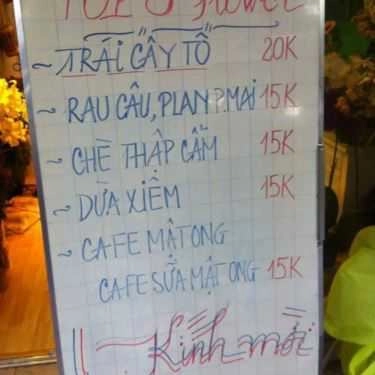 ~ TRÁI CÂY TÔ 20K
~ RAU CÂU, PLAN P.MAI 15K
~ CHÈ THẬP CẨM 15K
~ DỪA XIÊM 15K
~ CAFE MẬT ONG
CAFE SỮA MẬT ONG 15K
Kính mời